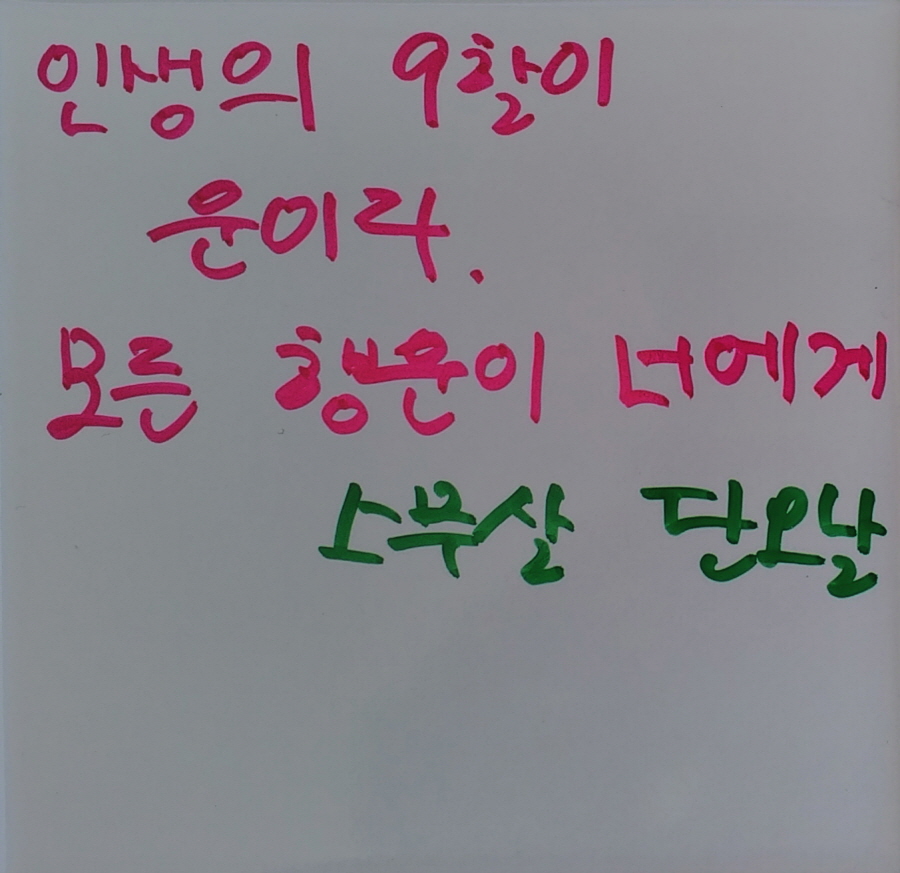 인생의 9할이
운이라.
모든 행운이 너에게
소무살 단오날